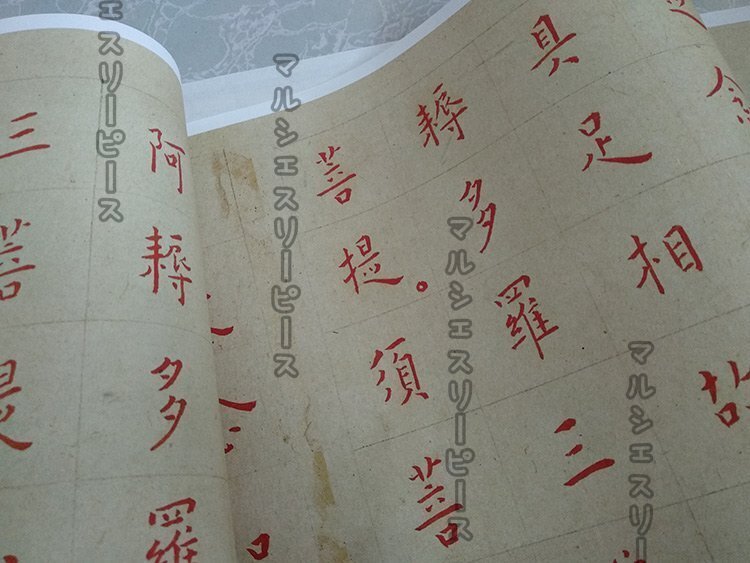 具足相故
耨多羅三
菩提。須菩
阿耨多羅
三菩
ェスリーピース
マルシェスリーピース
マルシェスリーピース
マルシェスリー